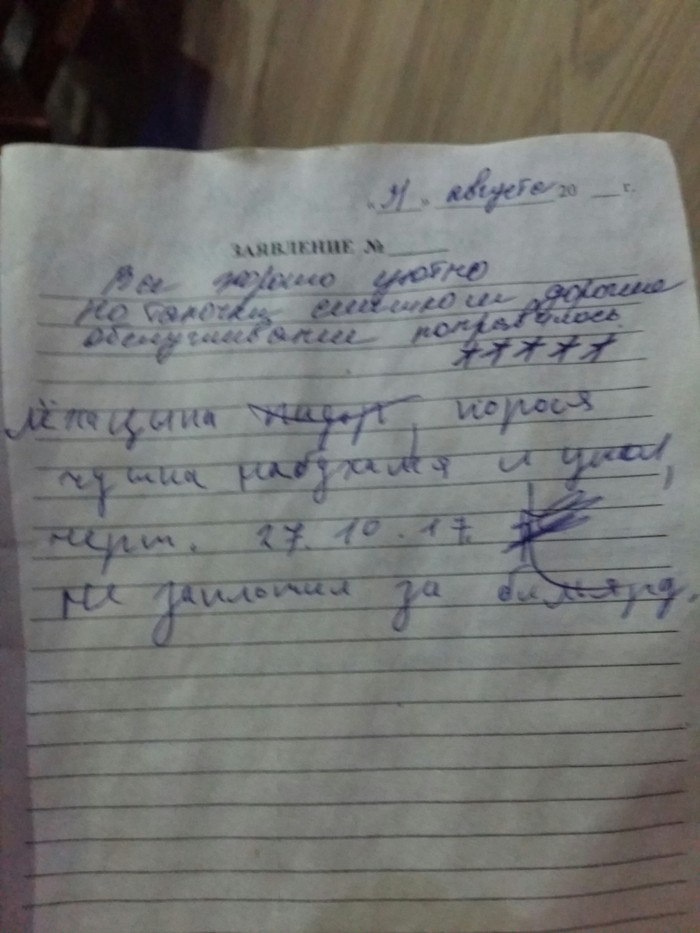 „31" августа 20 г.
ЗАЯВЛЕНИЕ №
Все хорошо уютно
Но тапочки слишком дорогие
обслуживание понравилось.
*****
порося
чушка набухался и ушол,
черт. 27. 10. 17.
не заплотил за бильярд.